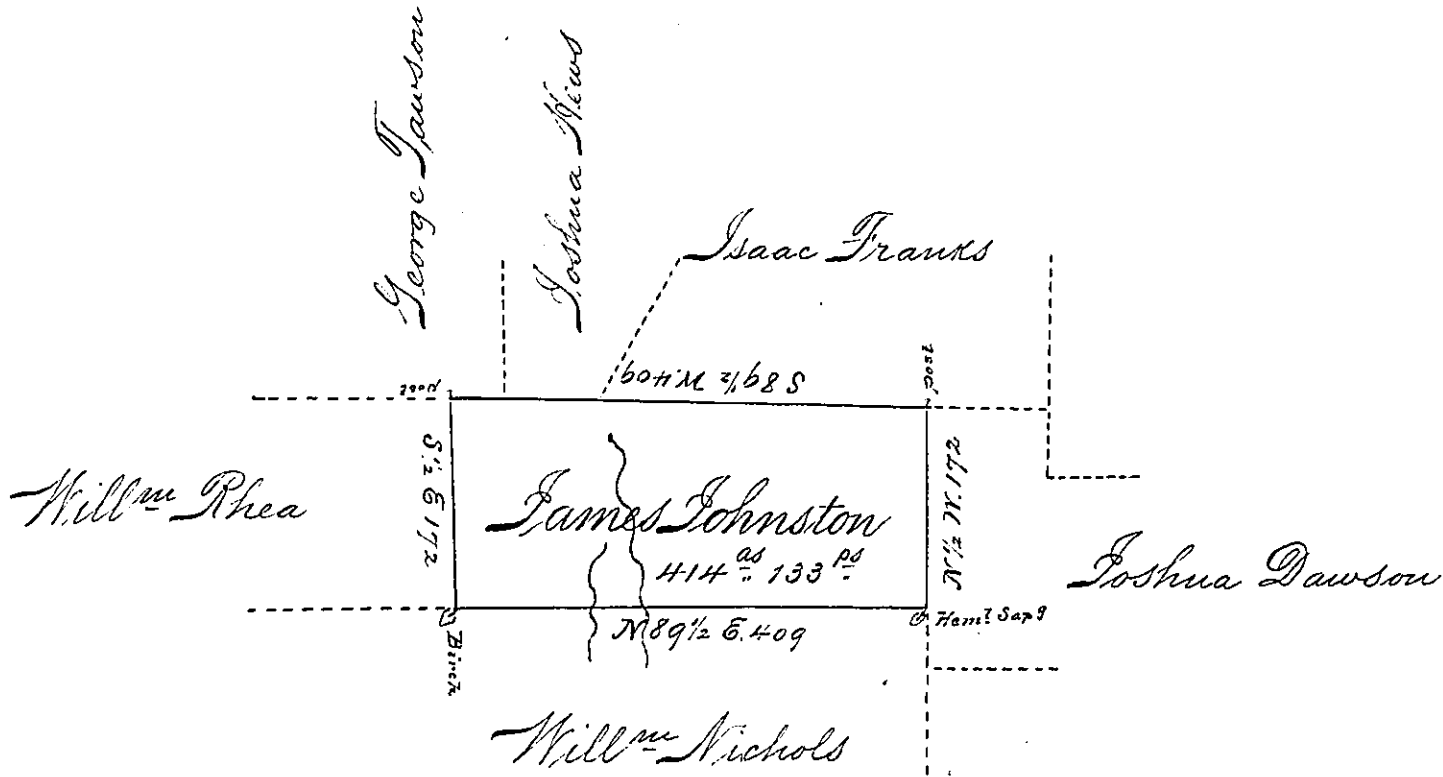 George Tawson
Joshua Hews
Isaac Franks
Post
S 89½ W. 409
Post
Will.m Rhea
S ½ E 172
James Johnston
414 as 133 ps
N ½ W. 172
Joshua Dawson
Birch
N 89½ E. 409
Hem.k Sapg
Will.m Nichols